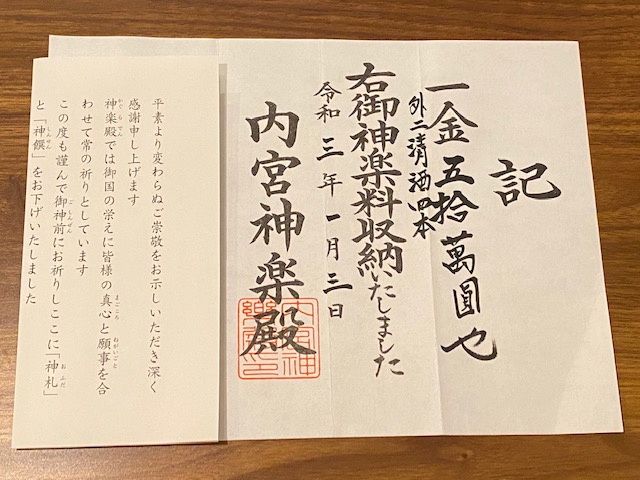 記
一金五拾萬圓也
外ニ清酒四本
右御神楽料収納いたしました
令和三年一月三日
内宮神楽殿
平素より変わらぬご崇敬をお示しいただき深く
感謝申し上げます
神楽殿では御国の栄えに皆様の真心と願事を合
わせて常の祈りとしています
この度も謹んで御神前にお祈りしここに「神札」
と「神饌」をお下げいたしました